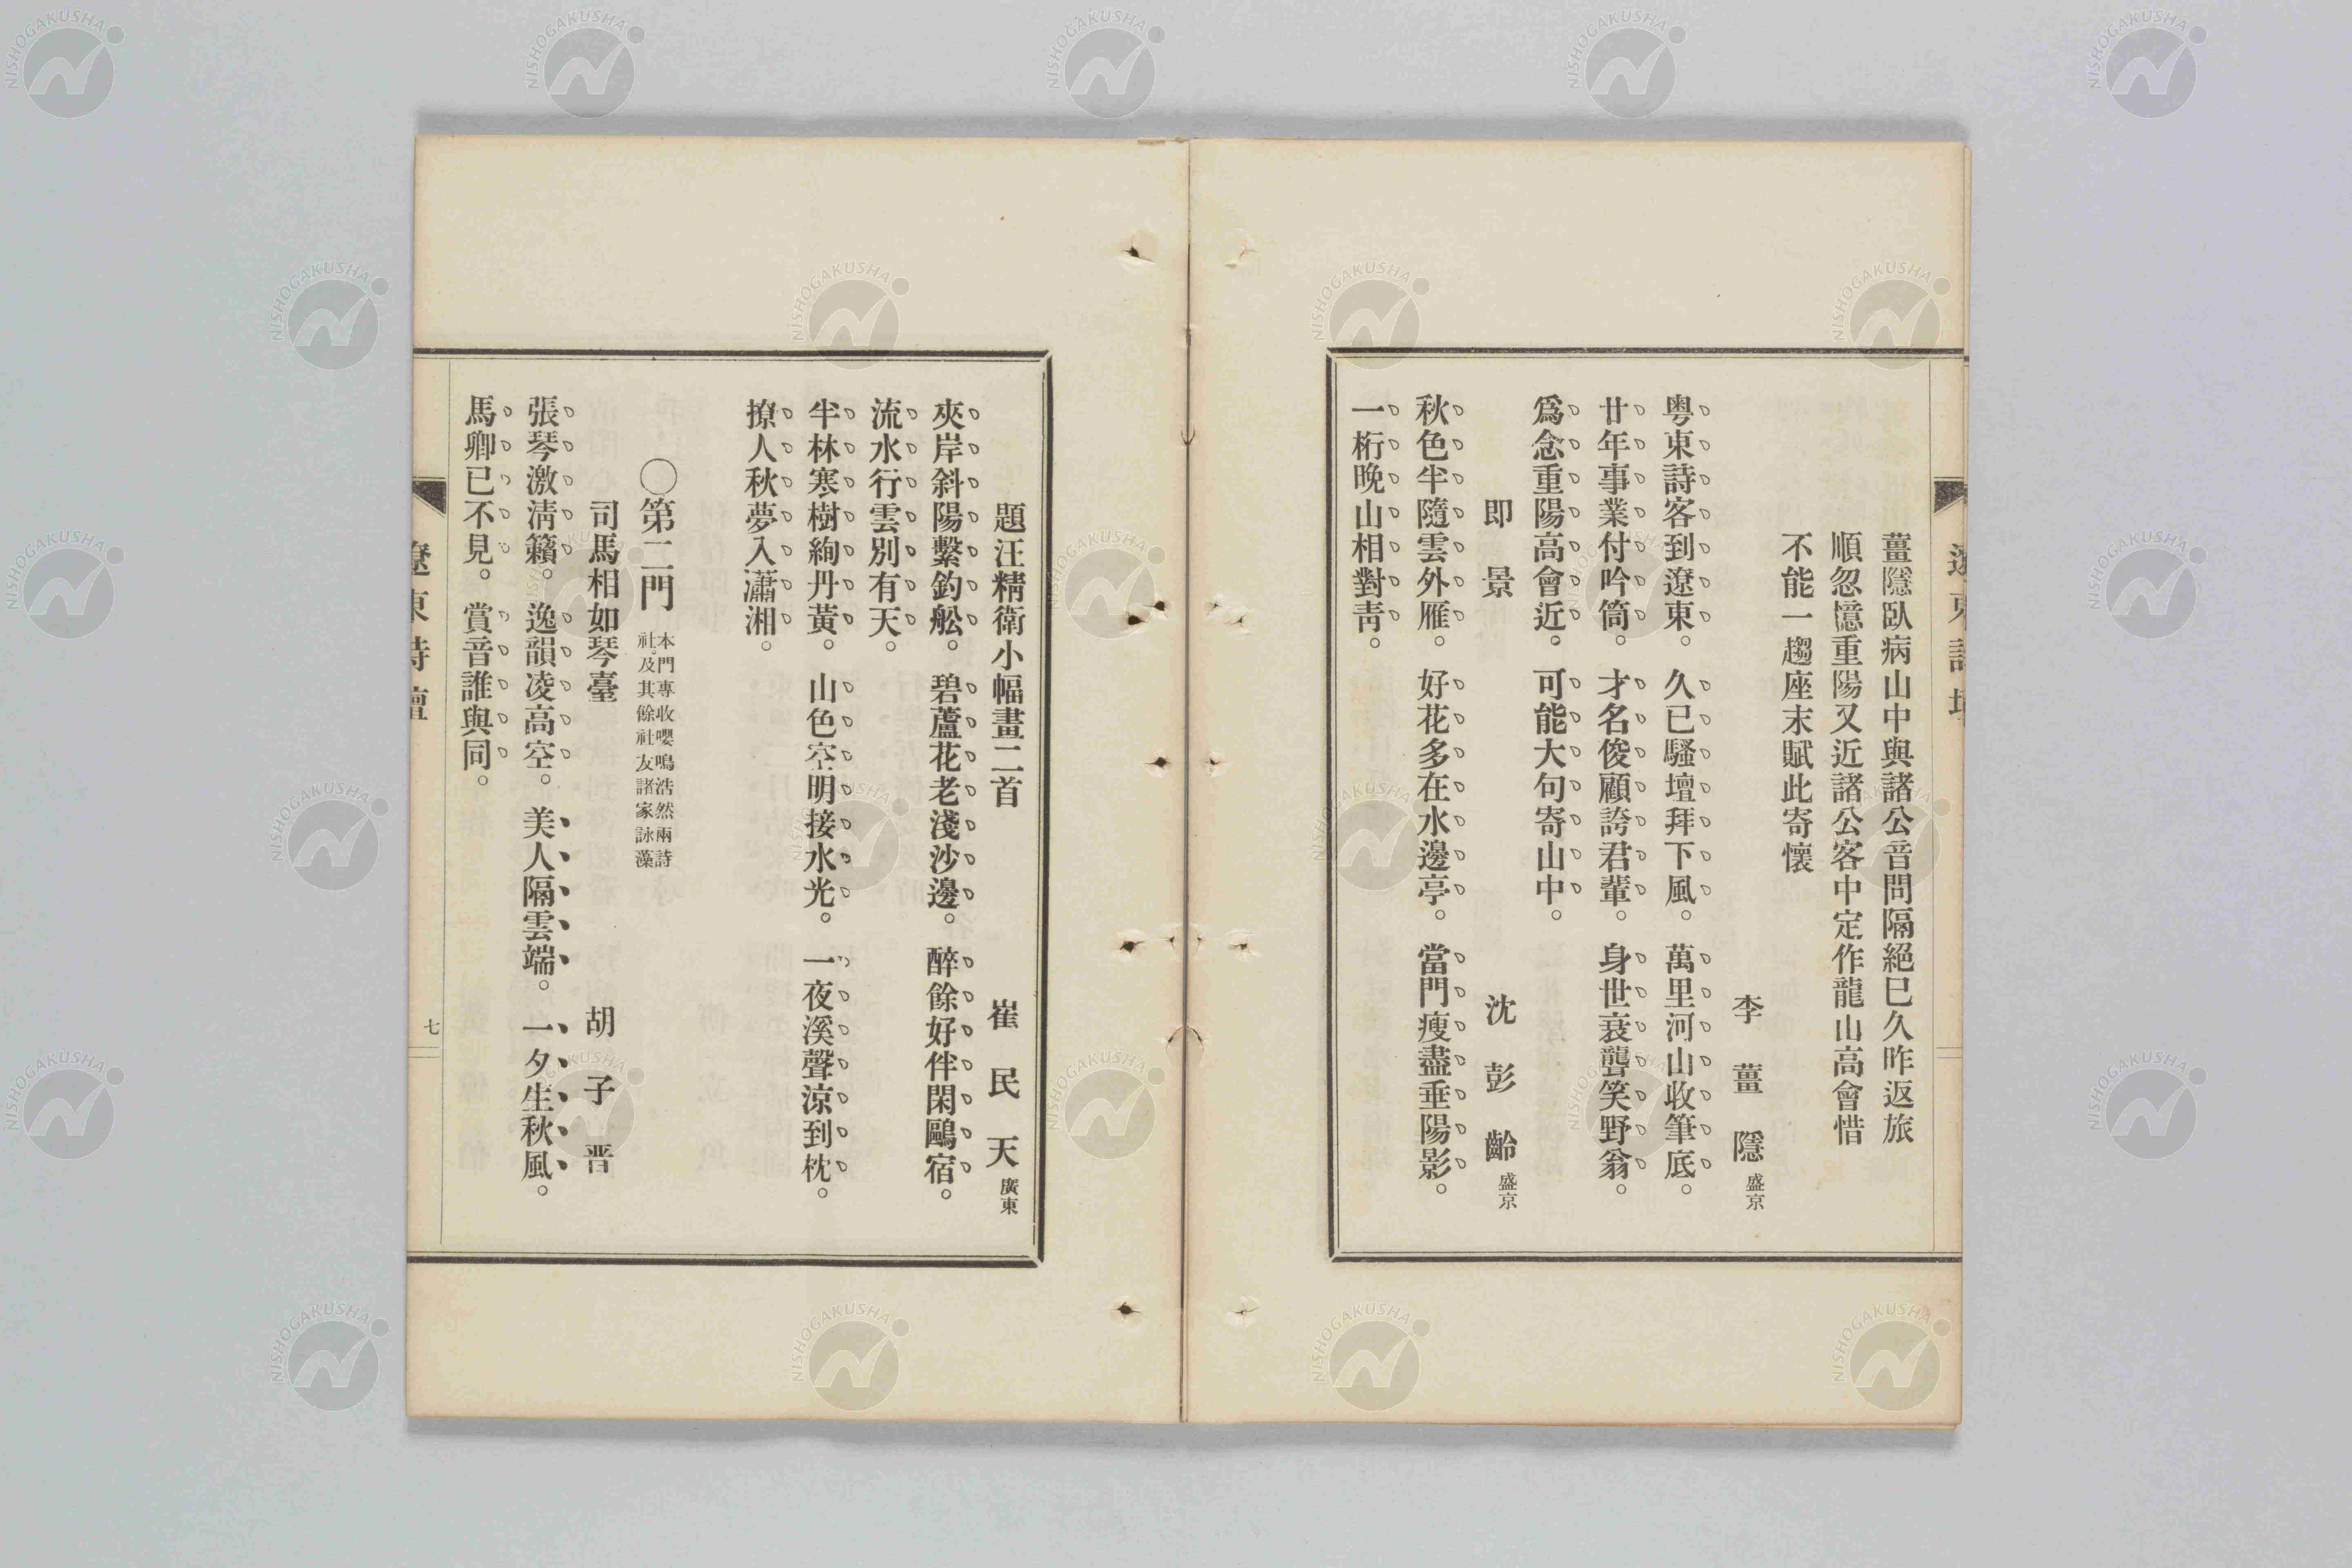 遼東詩壇
薑隱臥病山中與諸公音問隔絕巳久昨返旅
順忽憶重陽又近諸公客中定作龍山高會惜
不能一趨座末賦此寄懷
李薑隱盛京
粤東詩客到遼東。久已騷壇拜下風。萬里河山收筆底。
廿年事業付吟筒。才名俊顧誇君輩。身世衰聾笑野翁。
爲念重陽高會近。可能大句寄山中。
即景 沈彭齡盛京
秋色半隨雲外雁。好花多在水邊亭。當門瘦盡垂陽影。
一桁晚山相對靑。
題汪精衛小幅畫二首 崔民天廣東
夾岸斜陽繫釣舩。碧蘆花老淺沙邊。醉餘好伴閑鷗宿。
流水行雲別有天。
半林寒樹絢丹黃。山色空明接水光。一夜溪聲涼到枕。
撩人秋夢入瀟湘。
〇第二門 本門專收嚶鳴浩然兩詩
社。及其餘社友諸家詠藻
司馬相如琴臺 胡子晋
張琴激淸籟。逸韻凌高空。美人隔雲端。一夕生秋風。
馬卿已不見。賞音誰與同。
遼東詩壇 七
NISHOGAKUSHA